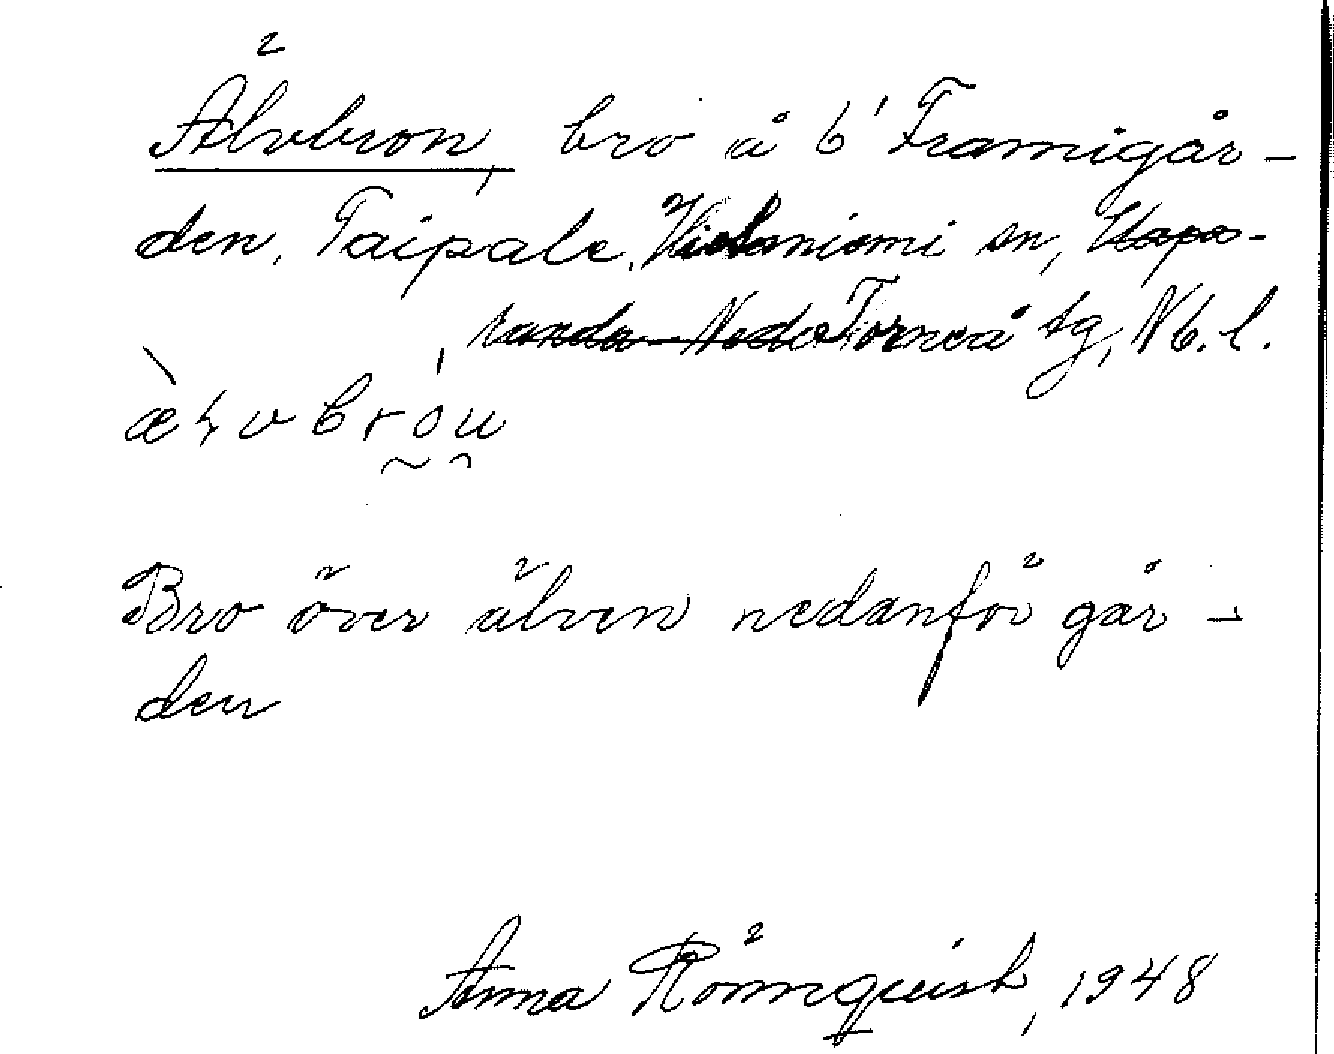 Älvbron, bro å 6' Framigår-
den, Taipale, Hietaniemi sn, Hapa-
randa-Neder Torneå tg, Nb. l.
Bro över älven nedanför går-
den
Anna Rönnquist, 1948